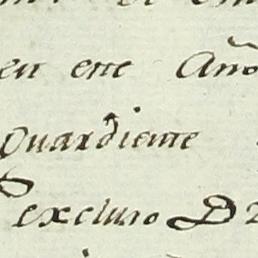 en este Año
Guardiente
excluso D